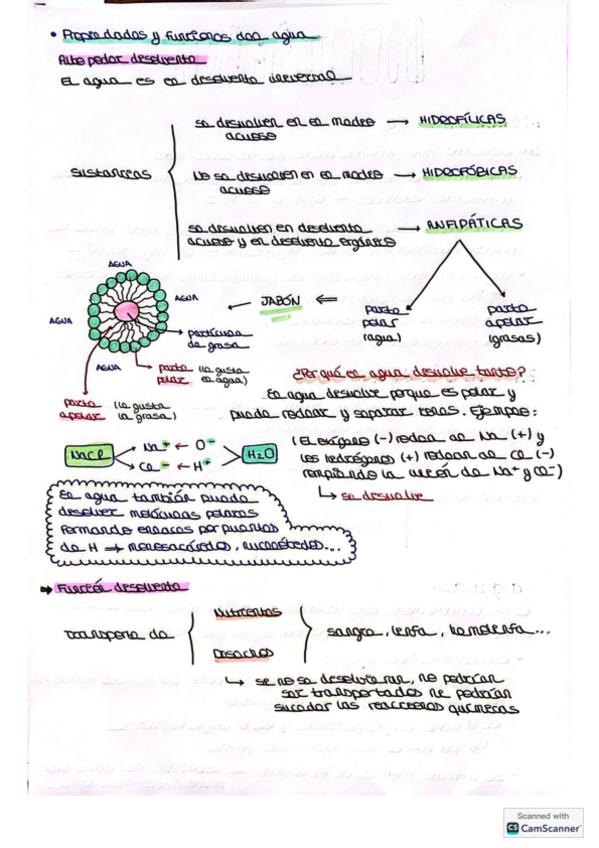 • Propiedades y funciones del agua
Alto poder disolvente
El agua es el disolvente universal
se disuelven en el medio → HIDROFÍLICAS
acuoso
Sustancias
No se disuelven en el medio → HIDROFÓBICAS
acuoso
se disuelven en disolvente → ANFIPÁTICAS
acuoso y en disolvente orgánico
AGUA
AGUA
AGUA
AGUA
← JABÓN ⇐
parte polar (agua)
parte apolar (grasas)
partícula de grasa
parte polar (le gusta el agua)
parte apolar (le gusta la grasa)
¿Por qué el agua disuelve tanto?
El agua disuelve porque es polar y
puede rodear y separar iones. Ejemplo:
NaCl
Na+ ← O-
Cl- ← H+
H2O
(El oxígeno (-) rodea al Na (+) y
los hidrógenos (+) rodean al Cl (-)
rompiendo la unión de Na+ y Cl-)
↳ se disuelve
El agua también puede
disolver moléculas polares
formando enlaces por puentes
de H → monosacáridos, nucleótidos...
➡ Función disolvente
Nutrientes
Transporte de
sangre, linfa, hemolinfa...
Desechos
↳ si no se disolvieran, no podrían
ser transportados ni podrían
suceder las reacciones químicas
Scanned with
CS CamScanner